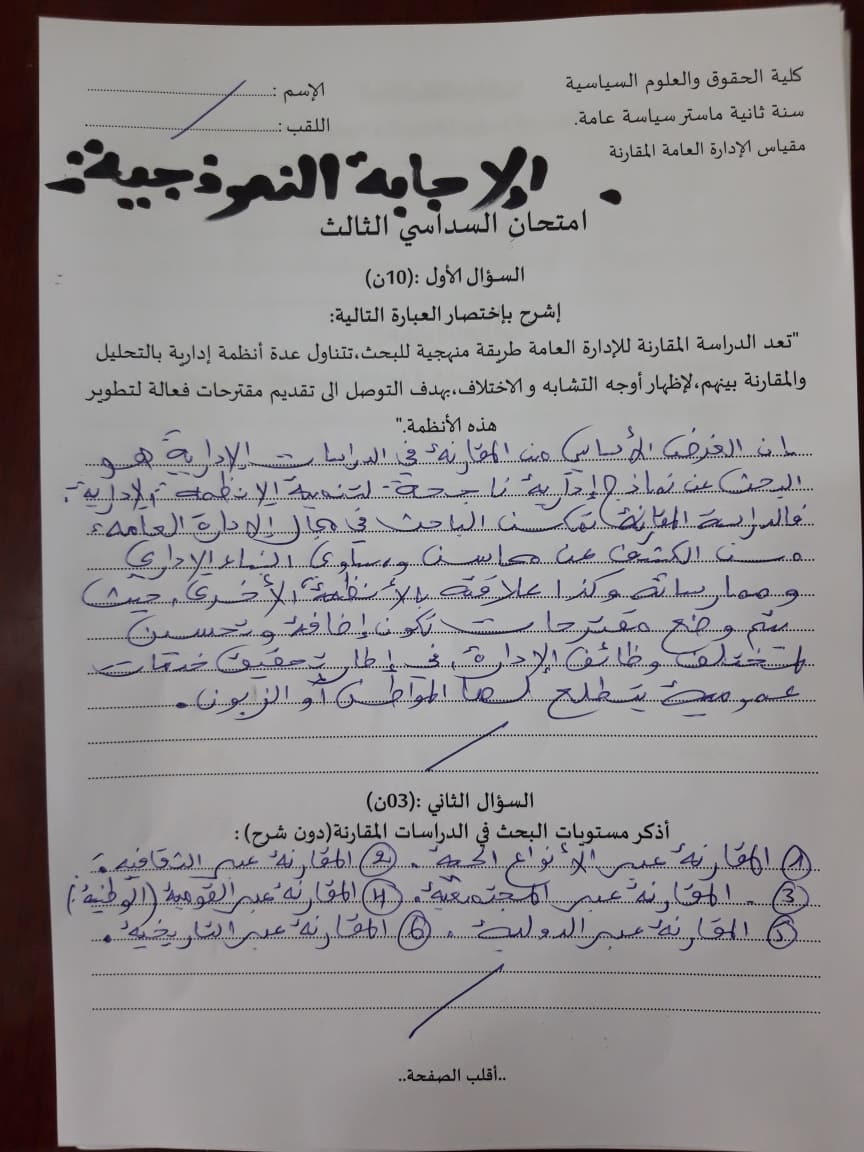 كلية الحقوق والعلوم السياسية
الإسم :
سنة ثانية ماستر سياسة عامة.
اللقب :
مقياس الإدارة العامة المقارنة
. الإجابة النموذجية :
امتحان السداسي الثالث
السؤال الأول :(10ن)
إشرح بإختصار العبارة التالية:
"تعد الدراسة المقارنة للإدارة العامة طريقة منهجية للبحث،تتناول عدة أنظمة إدارية بالتحليل
والمقارنة بينهم،لإظهار أوجه التشابه و الاختلاف،بهدف التوصل الى تقديم مقترحات فعالة لتطوير
هذه الأنظمة."
إن الغرض الأساسي من المقارنة في الدراسات الإدارية هو
البحث عن نماذج إدارية ناجحة لتنمية الانظمة الإدارية.
فالدراسة المقارنة تمكن الباحث في مجال الإدارة العامة
من الكشف عن محاسن ومساوئ البناء الإداري
وممارساته وكذا علاقته بالأنظمة الأخرى، حيث
يتم وضع مقترحات تكون إضافة وتحسين
لمختلف وظائف الإدارة، في إطار تحقيق خدمات
عمومية يتطلع لها المواطن أو الزبون.
السؤال الثاني :(03ن)
أذكر مستويات البحث في الدراسات المقارنة(دون شرح) :
① المقارنة عبر الأنواع الحية. ② المقارنة عبر الثقافية.
③. المقارنة عبر المجتمعية. ④ المقارنة عبر القومية (الوطنية)
⑤ المقارنة عبر الدولية. ⑥ المقارنة عبر التاريخية.
..أقلب الصفحة..